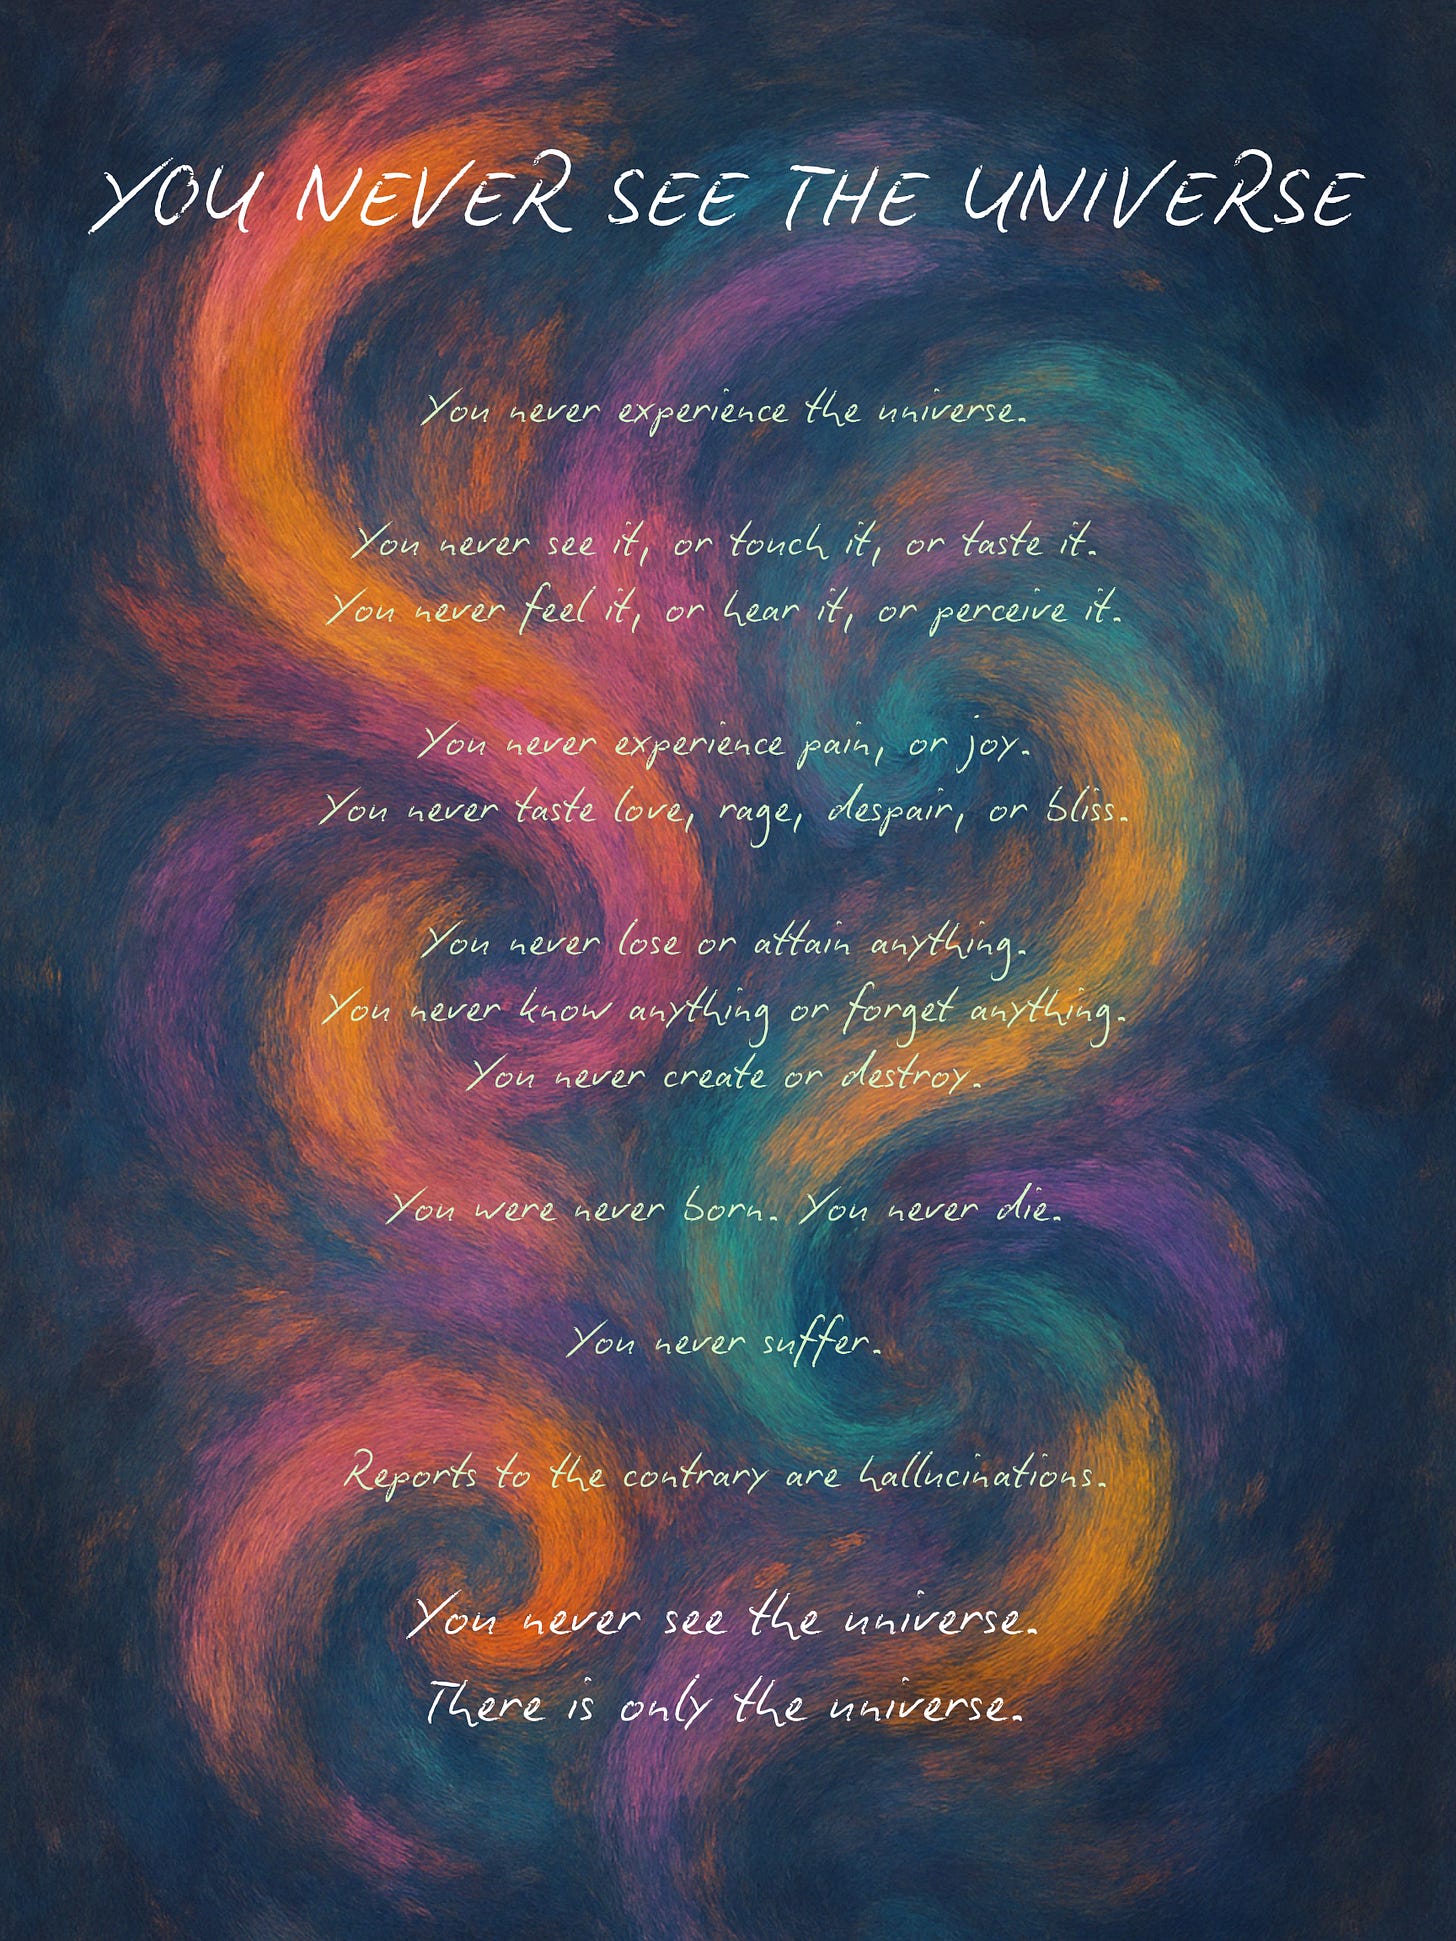 YOU NEVER SEE THE UNIVERSE
You never experience the universe.
You never see it, or touch it, or taste it.
You never feel it, or hear it, or perceive it.
You never experience pain, or joy.
You never taste love, rage, despair, or bliss.
You never lose or attain anything.
You never know anything or forget anything.
You never create or destroy.
You were never born. You never die.
You never suffer.
Reports to the contrary are hallucinations.
You never see the universe.
There is only the universe.